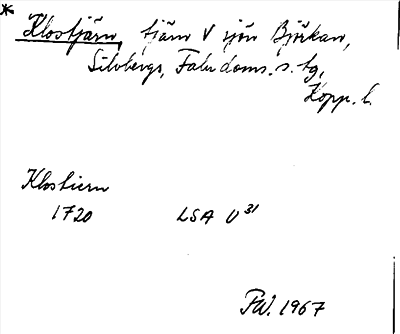 * Klostjärn, tjärn V sjön Björkan,
Silvbergs, Falu doms. s. tg,
Kopp. l.
Klostiern
1720 LSA U 31
FW. 1967